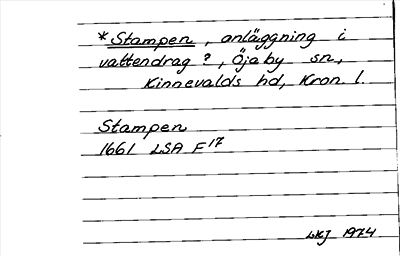 *Stampen, anläggning i
vattendrag?, Öjaby sn,
Kinnevalds hd, Kron. l.
Stampen
1661 LSA F17
LKJ 1974